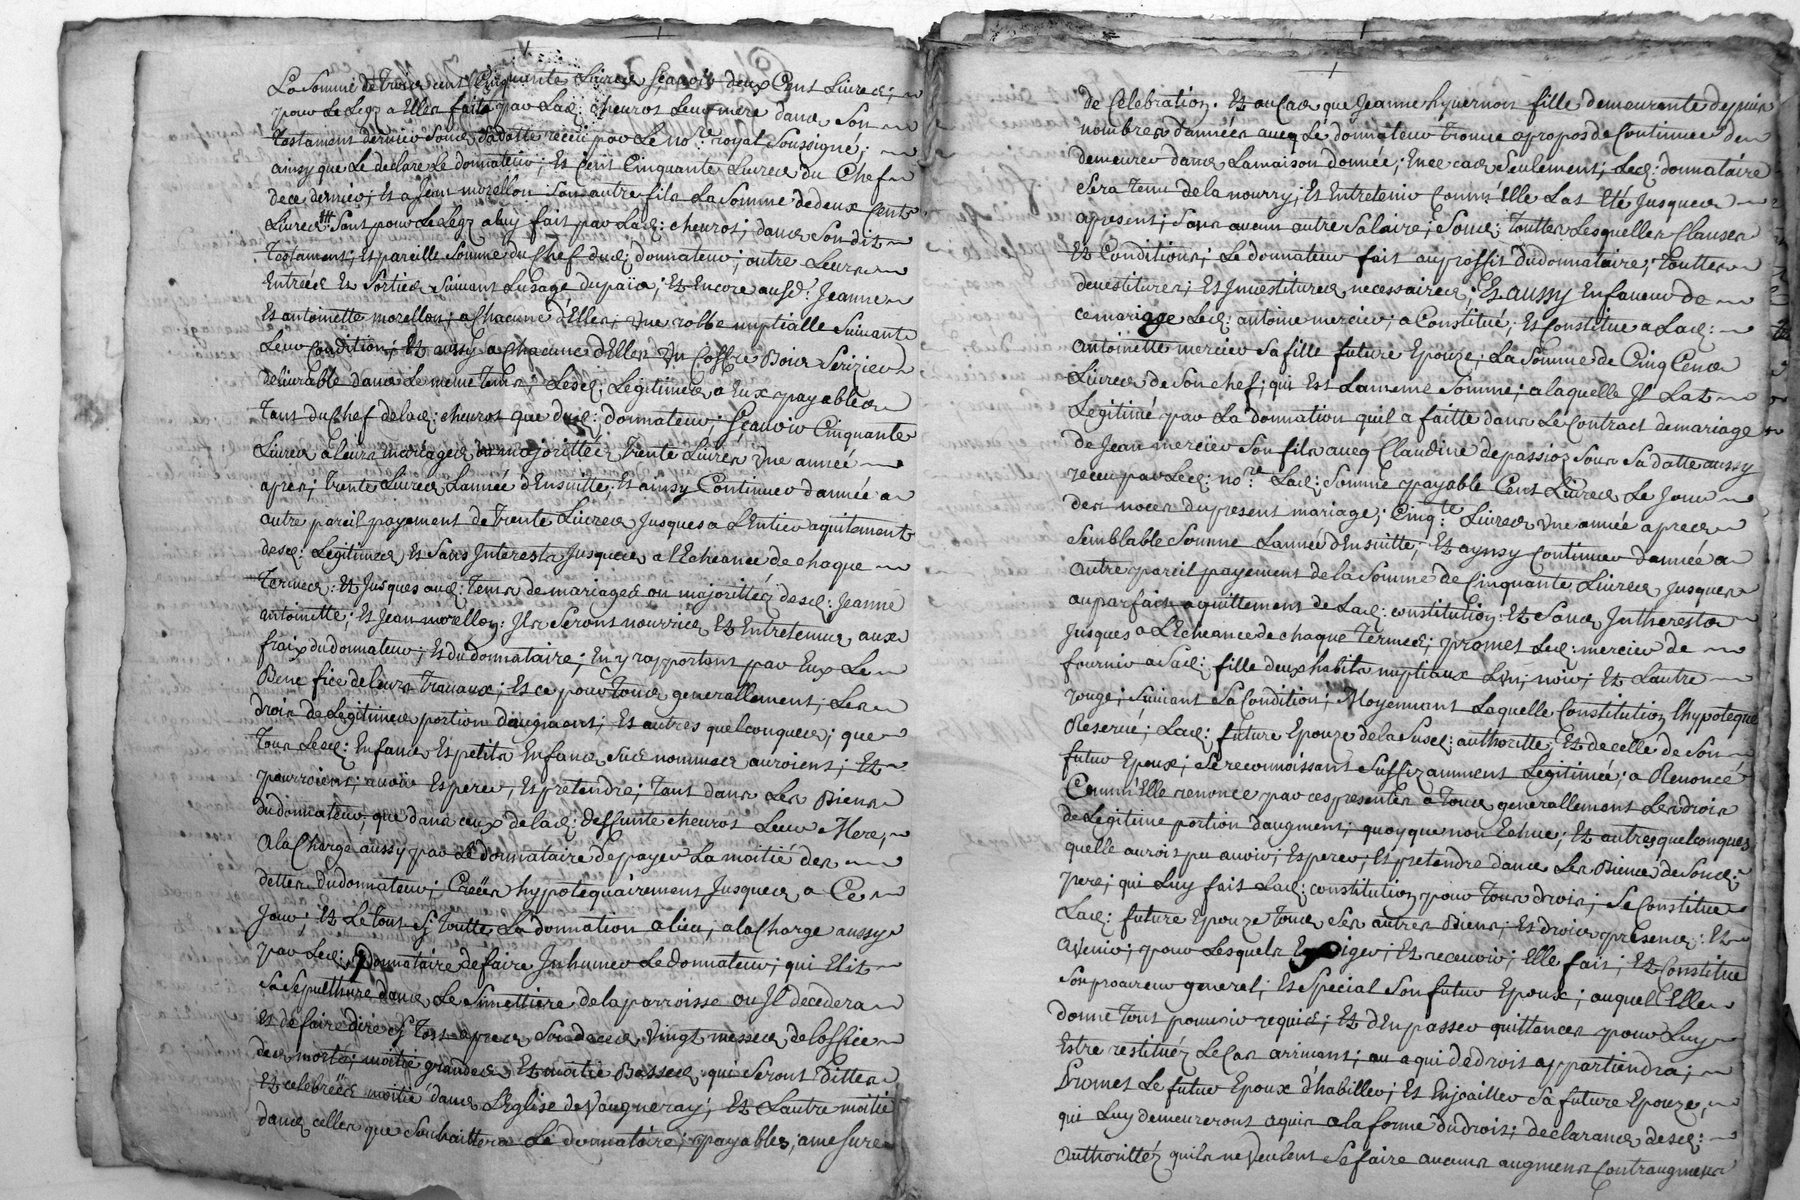 La Somme de trois cent Cinquante Livres sçavoir deux Cent Livres;
pour le Legz a Elles faits par Lad: cheuros Leur mere dans Son
Testament dernier sous sa datte receu par Le no.re royal Soussigné;
ainsy que Le declare Le donnateur; Et Cent Cinquante Livres du Chef
de ce dernier; Et a Jean morellon son autre fils La Somme de deux Cents
Livres Sant pour Le Legz a luy fait par Lad: cheuros; dans Son dit
Testament; Et pareille Somme du Chef dud: donnateur; outre Leurs
Entrées Et Sorties Suivant Lusage du païs; Et Encore ausd: Jeanne
Et antoinette morellon; a Chacune d'Elles, Une robbe nuptialle Suivant
Leur Condition; Et aussy a Chacune d'Elles Un Coffre Bois Serizier
delivrable dans Le meme Tems; Lesd: Legitimes a Eux payables
Tant du Chef de lad: cheuros que dud: donnateur; Sçavoir Cinquante
Livres a leurs mariages ou majorittéz Trente Livres Une année
apres; trente Livres L'année d'Ensuitte; Et ainsy Continuer d'année a
autre pareil payement de trente Livres Jusques a L'Entier aquitement
desd: Legitimes Et Sans Interests Jusques a l'Echeance de chaque
Termes: Et Jusques aud: Tems de mariages ou majorittéz desd: Jeanne
antoinette; Et Jean morellon: Ils Seront nourries Et Entretenus aux
fraix du donnateur; Et du donnataire; En y rapportant par Eux Le
Benefice de Leurs Travaux; Et ce pour Tous generallement; Les
droits de Legitimes portion d'augment; Et autres quelconques; que
Tous Lesd: Enfans Et petits Enfans Sus nommées auroient; Et
pourroient; avoir Esperer, Et pretendre; Tant dans Les Biens
du donnateur, que dans ceux de lad: deffunte cheuros Leur Mere,
A la Charge aussy par Le donnataire de payer La moitié des
dettes du donnateur; Creées hypotequairement Jusques a Ce
Jour; Et Le tout Sy Toutte La donnation a lieu; a la Charge aussy
par Led: donnataire de faire Inhumer Le donnateur; qui Elit
Sa Sepulthure dans Le Simettiere de la parroisse ou Il decedera
Et de faire dire Tost apres Son deces Vingt messes de loffice
des morts; moitié grandes Et moitié Basses, qui Seront Dittes
Et celebrées moitié dans L'Eglise de Vaugneray; Et L'autre moitié
dans celles que Souhaittera Le donnataire; payables; a mesure
de Celebration. Et au Cas que Jeanne hyvernon fille demeurante depuis
nombres d'années aveq Le donnateur trouve a propos de Continuer de
demeurer dans La maison donnée; En ce cas Seulement; Led: donnataire
Sera tenu de la nourry; Et Entretenir Comm'Elle L'at Eté Jusques
apresent; Sans aucun autre Salaire; Sous; Touttes Lesquelles Clauses
Et Conditions; Le donnateur fait au proffit du donnataire; Touttes
devestitures; Et Investitures necessaires; Et aussy En faveur de
ce mariage Led: antoine mercier; a Constitué; Et Constitue a Lad:
antoinette mercier Sa fille future Epouze; La Somme de Cinq Cens
Livres de Son chef; qui Est La meme Somme; a laquelle Il L'at
Legitimé par La donnation quil a faitte dans Le Contract de mariage
de Jean mercier Son fils aveq Claudine depassioz Sous Sa datte aussy
receu par Led: no.re Lad: Somme payable Cent Livres Le Jour
des noces du present mariage; Cinq.te Livres Une année apres
Semblable Somme L'année d'Ensuitte; Et aynsy Continuer d'année a
autre pareil payement de la Somme de Cinquante Livres Jusques
au parfait aquittement de Lad: constitution Et Sans Intherests
Jusques a L'Echeance de chaque Termes; promet Led: mercier de
fournir a Sad: fille deux habits nuptiaux L'un; noir; Et Lautre
rouge; Suivant Sa Condition; Moyennant Laquelle Constitution l'hypoteque
Reservé; Lad: future Epouze de la Susd: authoritte; Et de celle de Son
futur Epoux; Se reconnoissant Suffizamment Legitimée; a Renoncé
Comm'Elle renonce par ces presentes a Tous generallement Les droits
de Legitime portion d'augment; quoyque non Echue; Et autres quelconques
quelle auroit pu avoir; Esperer; Et pretendre dans Les Biens de Sond:
pere; qui Luy fait Lad: constitution pour Tous droits; Se Constitue
Lad: future Epouze Tous Ses autres Biens; Et droits presens: Et
avenir; pour Lesquels Exiger; Et recevoir; Elle fait; Et Constitue
Son procureur general; Et Special Son futur Epoux; auquel Elle
donne tout pouvoir requis; Et d'En passer quittances pour Luy
Estre restituéz Le Cas arrivant; ou a qui de droit appartiendra;
Promet Le futur Epoux d'habiller; Et Enjoailler Sa future Epouze,
qui Luy demeureront aquis a la forme du droit; declarant desd:
authorittéz quils ne Veulent Se faire aucuns augmens Contraugmens